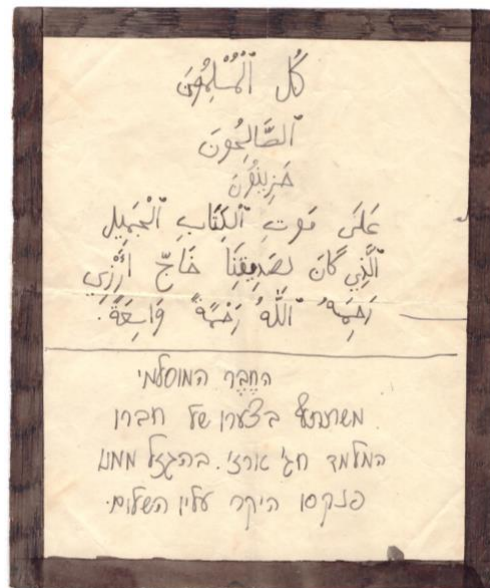 كُل ٱلْمُسْلِمُونَ
ٱلصَّالِحُونَ
حَزِينُونَ
عَلَى مَوتِ ٱلكِتَابِ ٱلْجَمِيل
ٱلَّذِي كَانَ لصَدِيقِنَا حَاجّ أرْزِي
رَحِمَهُ ٱللَّهُ رَحْمَةً وَاسِعَةً.
החֶבֶר המוסלמי
משתתף בצערו של חברו
המלמד חג׳ ארזי. בהגזל ממנו
פנקסו היקר עליו השלום.